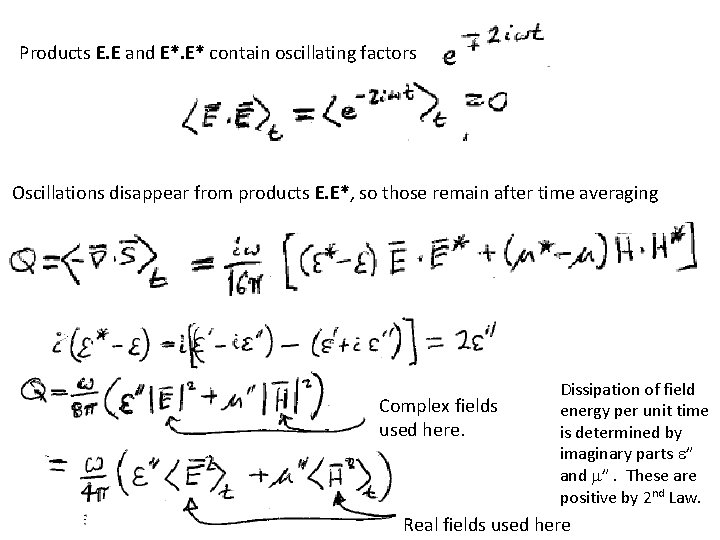 Products E.E and E*.E* contain oscillating factors e^{∓2iωt}
⟨E̅.E̅⟩_t = ⟨e^{-2iωt}⟩_t = 0
Oscillations disappear from products E.E*, so those remain after time averaging
Q = ⟨-∇̅.S̅⟩_t = iω/16π [(ε*-ε) E̅.E̅* + (μ*-μ) H̅.H̅*]
i(ε*-ε) = i[(ε'-iε'') - (ε'+iε'')] = 2ε''
Q = ω/8π (ε''|E̅|² + μ''|H̅|²)
Complex fields
used here.
= ω/4π (ε''⟨E̅²⟩_t + μ''⟨H̅²⟩_t)
Real fields used here
Dissipation of field
energy per unit time
is determined by
imaginary parts ε″
and μ″ . These are
positive by 2nd Law.